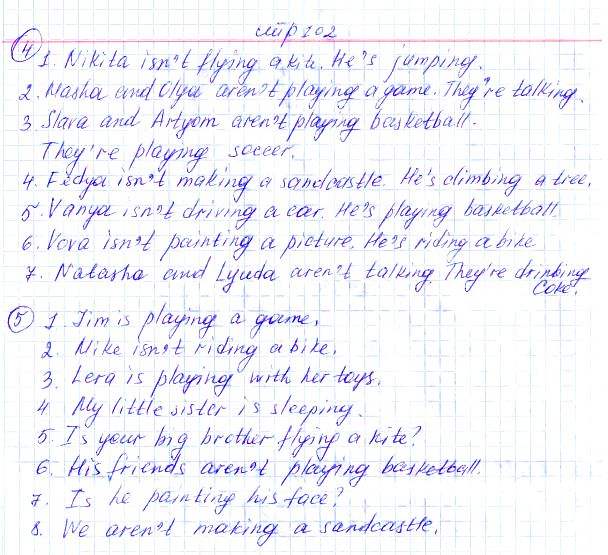 стр 102
4 1. Nikita isn't flying a kite. He's jumping.
2. Masha and Olya aren't playing a game. They're talking.
3. Slava and Artyom aren't playing basketball.
They're playing soccer.
4. Fedya isn't making a sandcastle. He's climbing a tree.
5. Vanya isn't driving a car. He's playing basketball.
6. Vova isn't painting a picture. He's riding a bike
7. Natasha and Lyuda aren't talking. They're drinking
Coke.
5 1. Jim is playing a game.
2. Mike isn't riding a bike.
3. Lera is playing with her toys.
4. My little sister is sleeping.
5. Is your big brother flying a kite?
6. His friends aren't playing basketball.
7. Is he painting his face?
8. We aren't making a sandcastle.